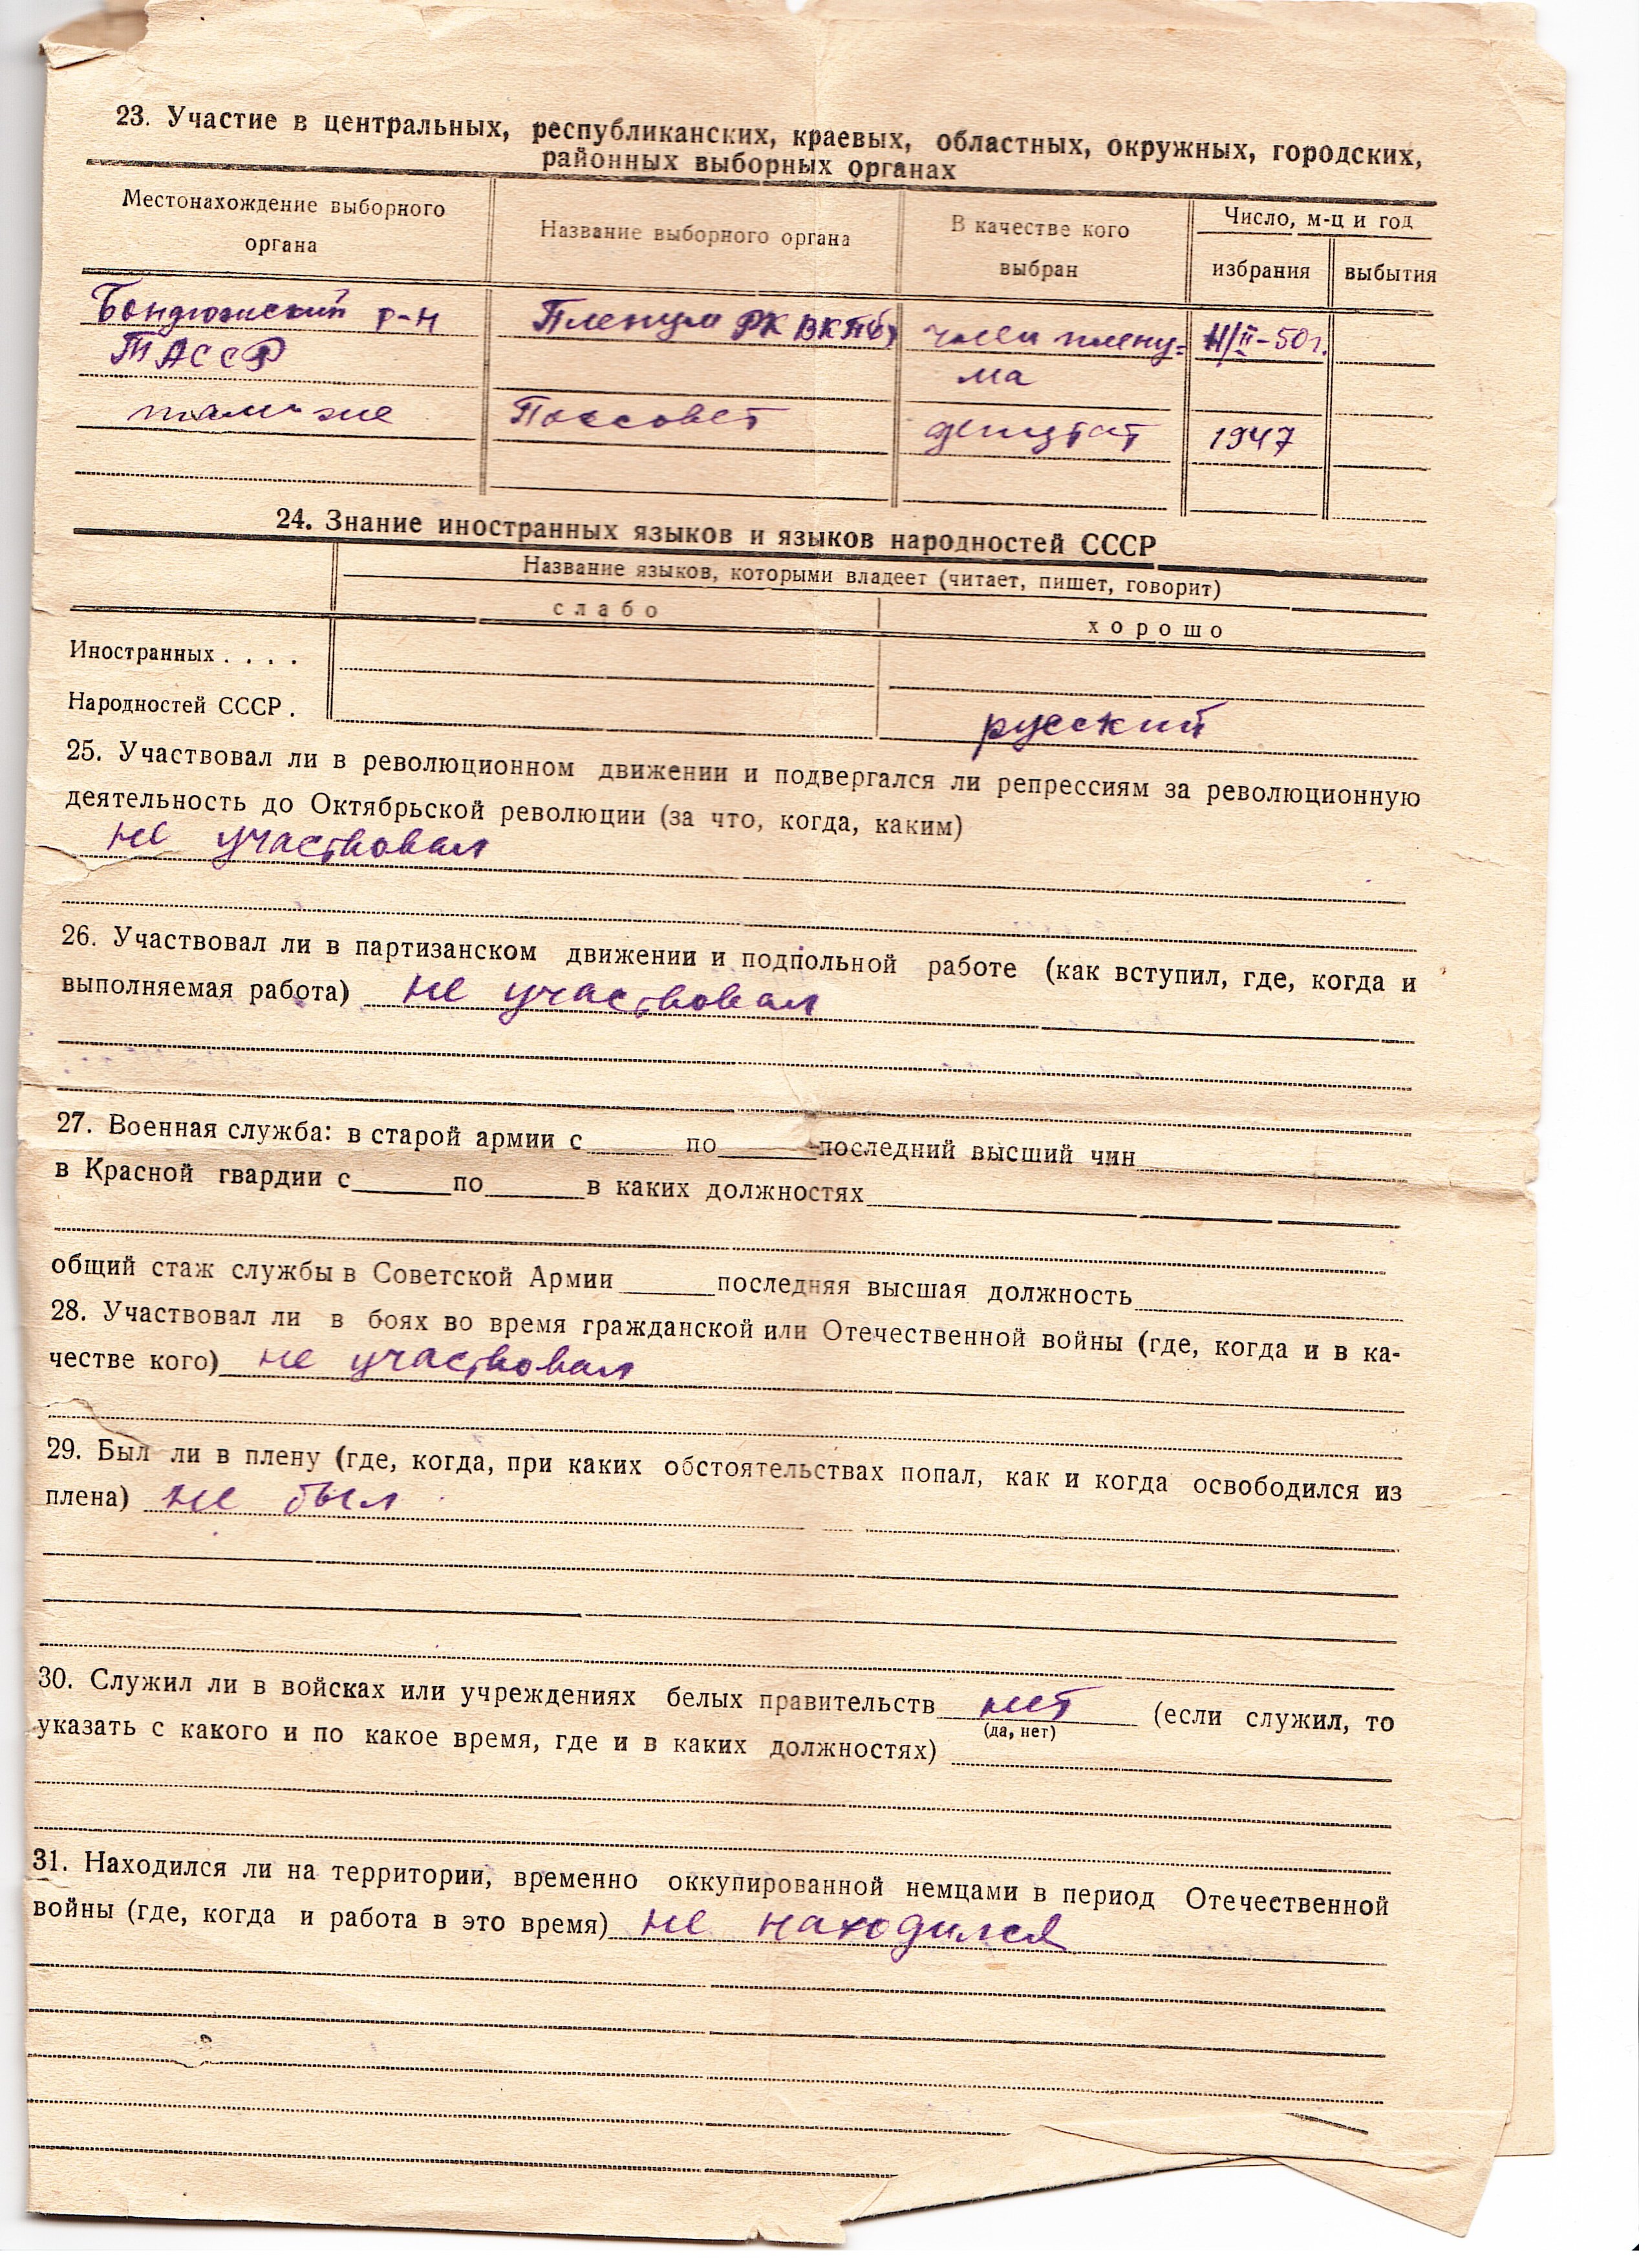 23. Участие в центральных, республиканских, краевых, областных, окружных, городских,
районных выборных органах
Местонахождение выборного
органа
Название выборного органа
В качестве кого
выбран
Число, м-ц и год
избрания
выбытия
Бондюжский р-н
ТАССР
Пленум РК ВКПб)
член плену-
ма
II-50г.
там же
Поссовет
депутат
1947
24. Знание иностранных языков и языков народностей СССР
Название языков, которыми владеет (читает, пишет, говорит)
слабо
хорошо
Иностранных . . . .
Народностей СССР .
русский
25. Участвовал ли в революционном движении и подвергался ли репрессиям за революционную
деятельность до Октябрьской революции (за что, когда, каким)
не участвовал
26. Участвовал ли в партизанском движении и подпольной работе (как вступил, где, когда и
выполняемая работа) не участвовал
27. Военная служба: в старой армии с по последний высший чин
в Красной гвардии с по в каких должностях
общий стаж службы в Советской Армии последняя высшая должность
28. Участвовал ли в боях во время гражданской или Отечественной войны (где, когда и в ка-
честве кого) не участвовал
29. Был ли в плену (где, когда, при каких обстоятельствах попал, как и когда освободился из
плена) не был
30. Служил ли в войсках или учреждениях белых правительств нет (если служил, то
(да, нет)
указать с какого и по какое время, где и в каких должностях)
31. Находился ли на территории, временно оккупированной немцами в период Отечественной
войны (где, когда и работа в это время) не находился